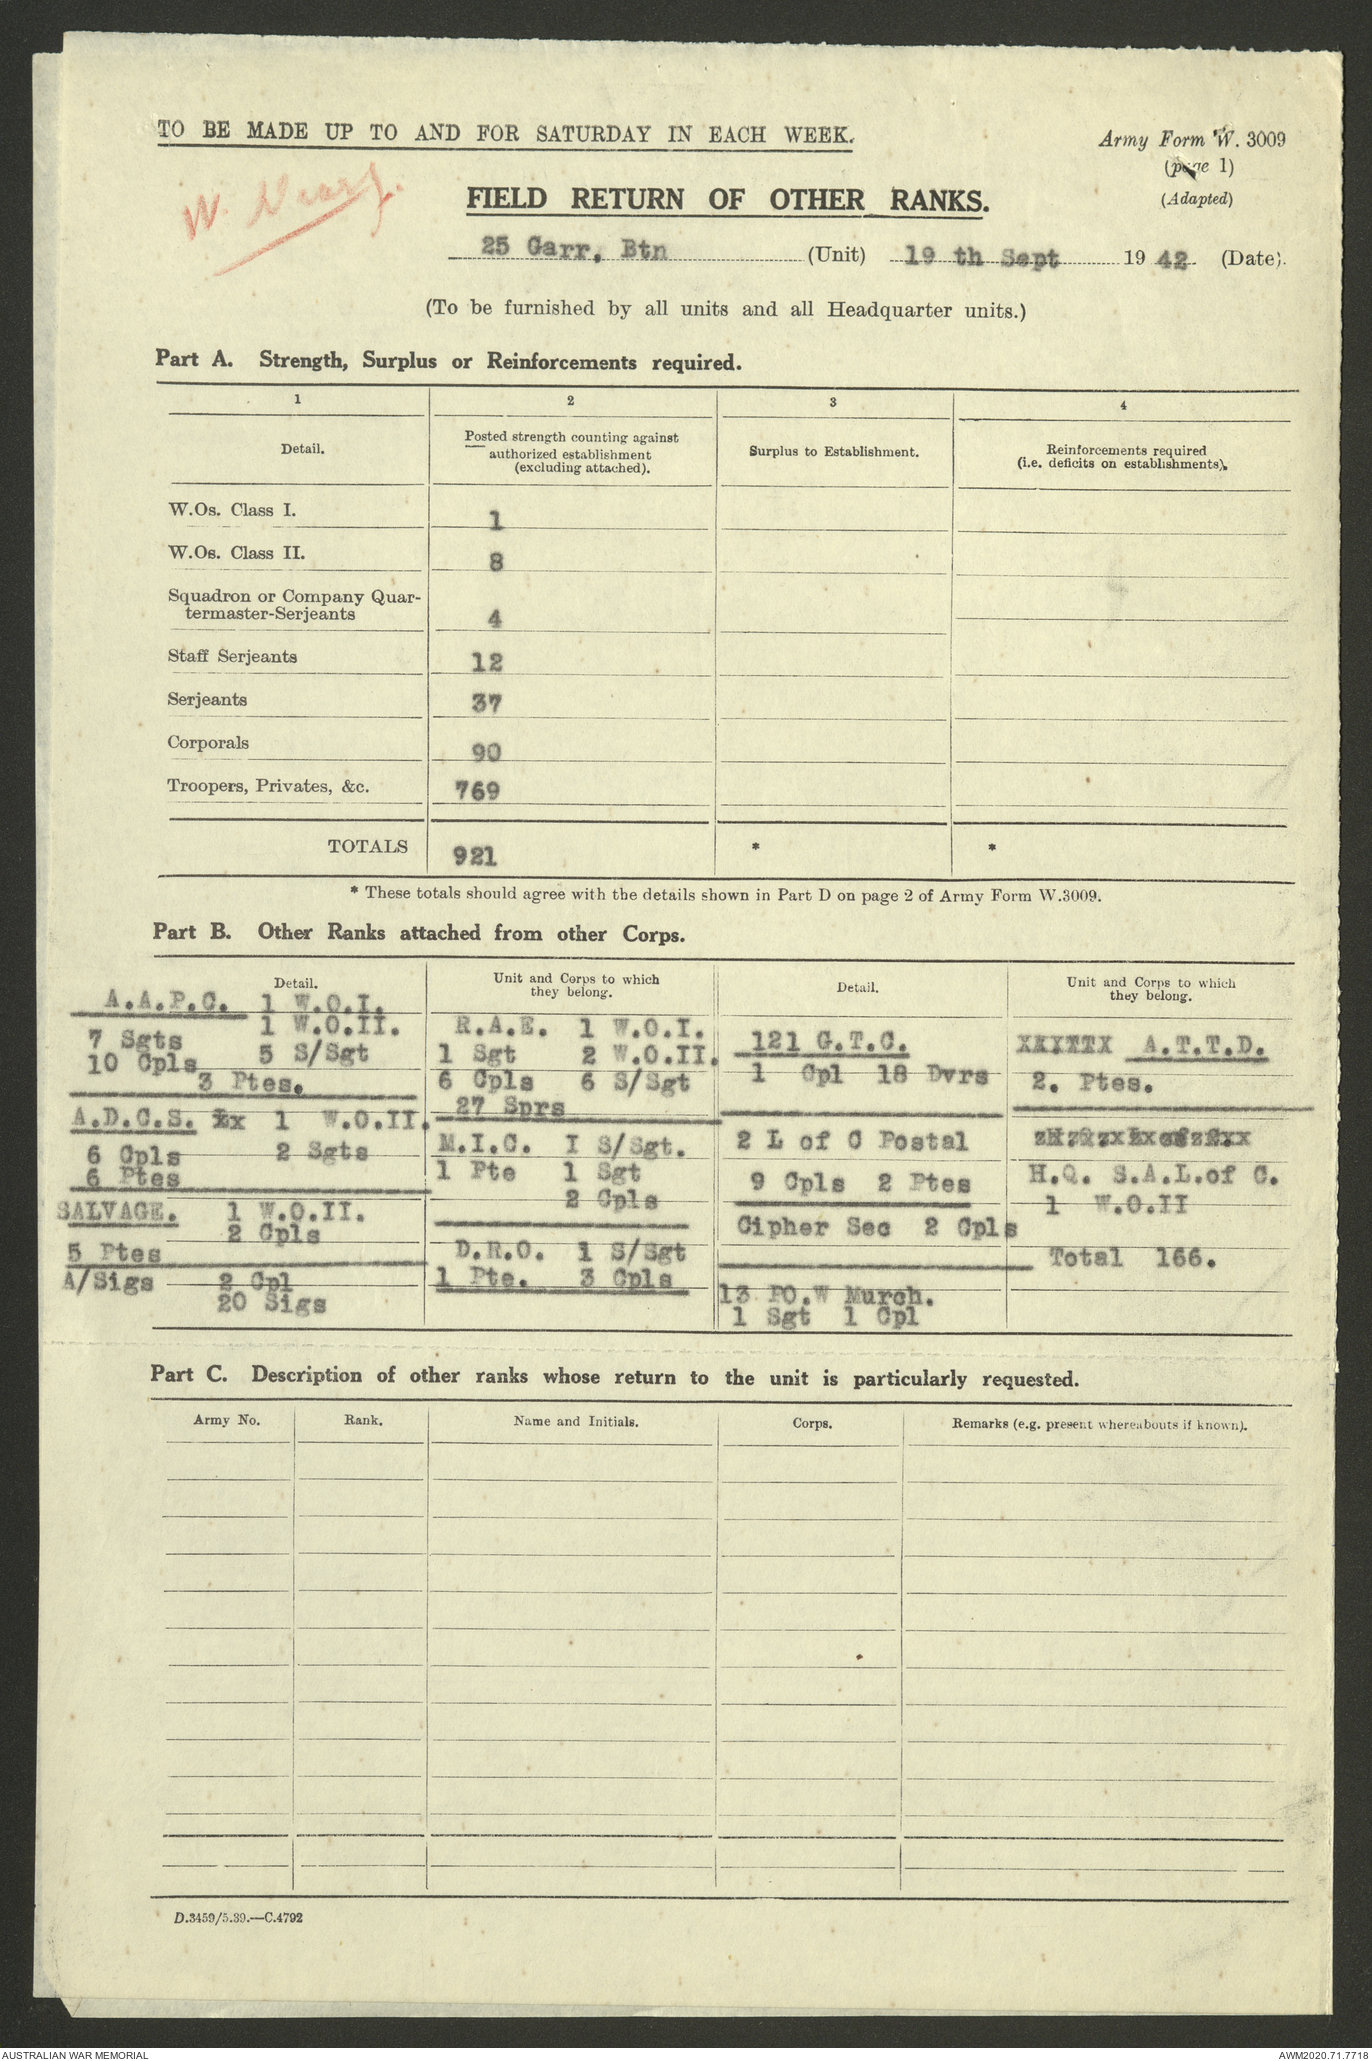 TO BE MADE UP TO AND FOR SATURDAY IN EACH WEEK.
Army Form W. 3009
(page 1)
(Adapted)
W. Diary.
FIELD RETURN OF OTHER RANKS.
25 Garr, Btn (Unit) 19 th Sept 19 42 (Date).
(To be furnished by all units and all Headquarter units.)
Part A. Strength, Surplus or Reinforcements required.
1 2 3 4
Detail.
Posted strength counting against
authorized establishment
(excluding attached).
Surplus to Establishment.
Reinforcements required
(i.e. deficits on establishments).
W.Os. Class I. 1
W.Os. Class II. 8
Squadron or Company Quar-
termaster-Serjeants 4
Staff Serjeants 12
Serjeants 37
Corporals 90
Troopers, Privates, &c. 769
TOTALS 921 * *
* These totals should agree with the details shown in Part D on page 2 of Army Form W.3009.
Part B. Other Ranks attached from other Corps.
Detail.
A.A.P.C. 1 W.O.I.
1 W.O.II.
7 Sgts
5 S/Sgt
10 Cpls
3 Ptes.
A.D.C.S. 1 W.O.II.
6 Cpls 2 Sgts
6 Ptes
SALVAGE. 1 W.O.II.
2 Cpls
5 Ptes
A/Sigs 2 Cpl
20 Sigs
Unit and Corps to which
they belong.
R.A.E. 1 W.O.I.
1 Sgt 2 W.O.II.
6 Cpls 6 S/Sgt
27 Sprs
M.I.C. I S/Sgt.
1 Pte 1 Sgt
2 Cpls
D.R.O. 1 S/Sgt
1 Pte. 3 Cpls
Detail.
121 G.T.C.
1 Cpl 18 Dvrs
2 L of C Postal
9 Cpls 2 Ptes
Cipher Sec 2 Cpls
13 PO.W Murch.
1 Sgt 1 Cpl
Unit and Corps to which
they belong.
A.T.T.D.
2. Ptes.
H.Q. S.A.L.of C.
1 W.O.II
Total 166.
Part C. Description of other ranks whose return to the unit is particularly requested.
Army No. Rank. Name and Initials. Corps. Remarks (e.g. present whereabouts if known).
D.3459/5.39.—C.4792
AUSTRALIAN WAR MEMORIAL
AWM2020.71.7718